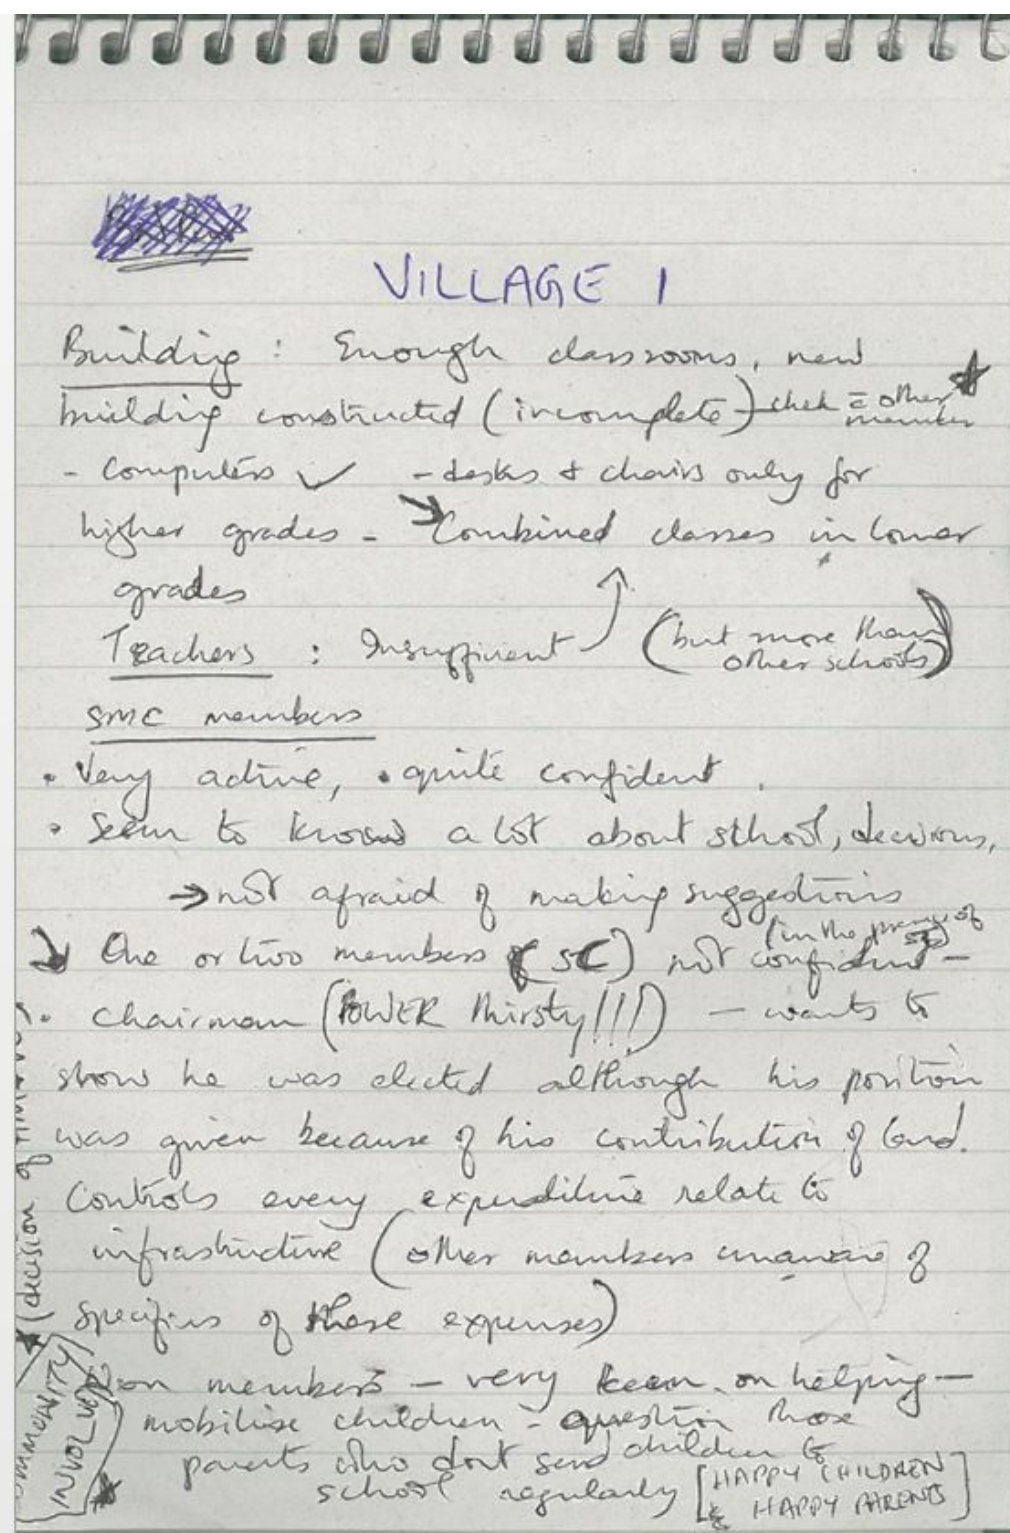 VILLAGE 1
Building : Enough classrooms, new
building constructed (incomplete) - chek c̄ other member
- Computers ✓ - desks & chairs only for
higher grades - → Combined classes in lower
grades
Teachers : Insufficient (but more than
other schools)
SMC members
• Very active, • quite confident.
• Seem to know a lot about school, decisions,
→ not afraid of making suggestions
→ One or two members (SC) not confident - (in the presence of
• Chairman (POWER thirsty!!!) - wants to
show he was elected although his position
was given because of his contribution of land.
Controls every expenditure relate to
infrastructure (other members unaware of
specifics of these expenses)
members - very keen on helping -
mobilise children - question those
parents who dont send children to
school regularly [HAPPY CHILDREN
HAPPY PARENTS]
(decision of